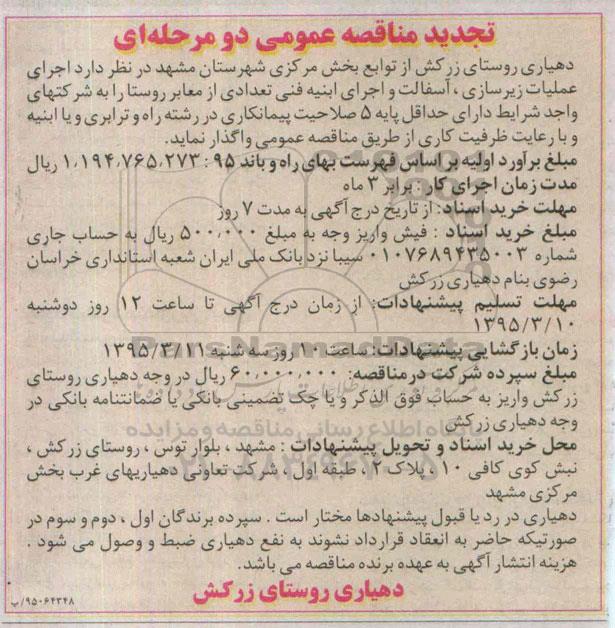 تجدید مناقصه عمومی دو مرحله‌ای
دهیاری روستای زرکش از توابع بخش مرکزی شهرستان مشهد در نظر دارد اجرای
عملیات زیرسازی ، آسفالت و اجرای ابنیه فنی تعدادی از معابر روستا را به شرکتهای
واجد شرایط دارای حداقل پایه ۵ صلاحیت پیمانکاری در رشته راه و ترابری و یا ابنیه
و با رعایت ظرفیت کاری از طریق مناقصه عمومی واگذار نماید.
مبلغ برآورد اولیه بر اساس فهرست بهای راه و باند ۹۵ : ۱،۱۹۴،۷۶۵،۲۷۳ ریال
مدت زمان اجرای کار : برابر ۳ ماه
مهلت خرید اسناد: از تاریخ درج آگهی به مدت ۷ روز
مبلغ خرید اسناد : فیش واریز وجه به مبلغ ۵۰۰،۰۰۰ ریال به حساب جاری
شماره ۰۱۰۷۶۸۹۴۳۵۰۰۳ سیبا نزد بانک ملی ایران شعبه استانداری خراسان
رضوی بنام دهیاری زرکش
مهلت تسلیم پیشنهادات: از زمان درج آگهی تا ساعت ۱۲ روز دوشنبه
۱۳۹۵/۳/۱۰
زمان بازگشایی پیشنهادات: ساعت ۱۰ روز سه شنبه ۱۳۹۵/۳/۱۱
مبلغ سپرده شرکت در مناقصه: ۶۰،۰۰۰،۰۰۰ ریال در وجه دهیاری روستای
زرکش واریز به حساب فوق الذکر و یا چک تضمینی بانکی یا ضمانتنامه بانکی در
وجه دهیاری زرکش
محل خرید اسناد و تحویل پیشنهادات : مشهد ، بلوار توس ، روستای زرکش ،
نبش کوی کافی ۱۰ ، پلاک ۱۲ طبقه اول ، شرکت تعاونی دهیاریهای غرب بخش
مرکزی مشهد
دهیاری در رد یا قبول پیشنهادها مختار است . سپرده برندگان اول ، دوم و سوم در
صورتیکه حاضر به انعقاد قرارداد نشوند به نفع دهیاری ضبط و وصول می شود .
هزینه انتشار آگهی به عهده برنده مناقصه می باشد.
دهیاری روستای زرکش
۹۵۰۶۴۳۴۸/پ
ParsNamadData
پایگاه اطلاع رسانی مناقصه و مزایده